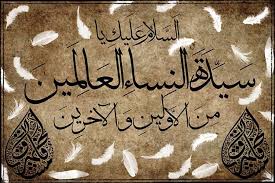 السلام عليك يا
سيدة النساء العالمين
من الأولين والآخرين